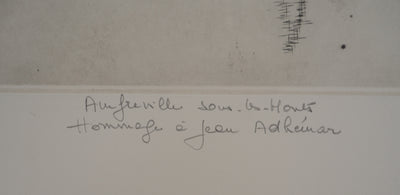 Amfreville sous-les-Monts
Hommage à Jean Adhémar